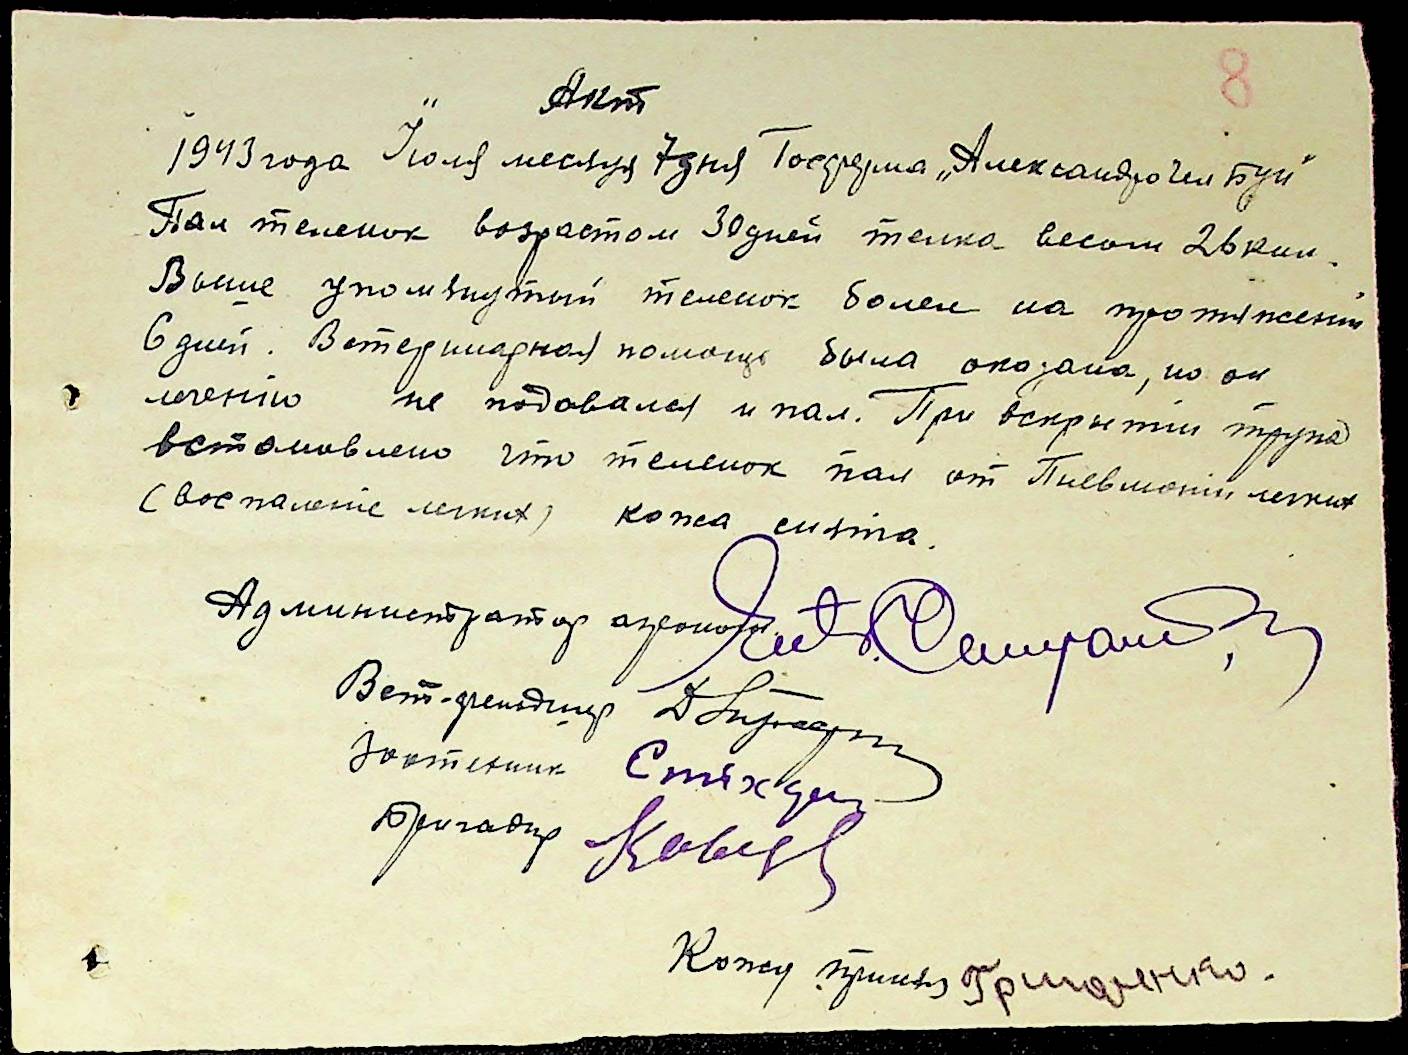 8
Акт
1943 года Їюля месяця 7 дня Госферма „Александро
Пал теленок возрастом 30 дней телка весом 26 кил.
Выше упомянутый теленок болел на протяжении
6 дней. Ветеринарная помощь была оказана, но он
лечению не подовался и пал. При вскрытии трупа
встановлено что теленок пал от Пневмонии легких
(воспаленіе легких) кожа снята.
Администратор агроном
Вет-фельдшер
Зоотехник
Бригадир
Кожу принял Гриценко.